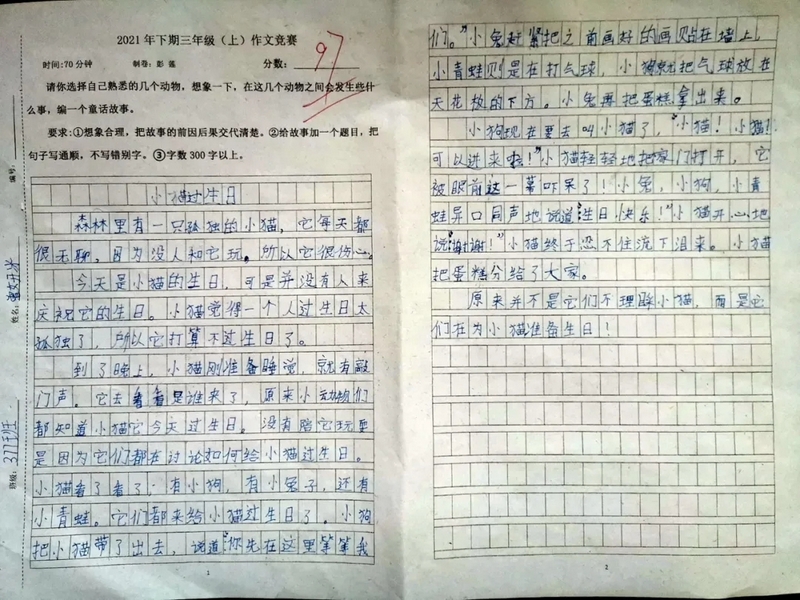 2021年下期三年级（上）作文竞赛
时间:70分钟 制卷: 彭莲 分数:
97
请你选择自己熟悉的几个动物，想象一下，在这几个动物之间会发生些什
么事，编一个童话故事。
要求:①想象合理，把故事的前因后果交代清楚。②给故事加一个题目，把
句子写通顺，不写错别字。③字数300字以上。
编号:
姓名:
班级: 377班
小猫过生日
森林里有一只孤独的小猫，它每天都
很无聊，因为没人和它玩。所以它很伤心。
今天是小猫的生日，可是并没有人来
庆祝它的生日。小猫觉得一个人过生日太
孤独了，所以它打算不过生日了。
到了晚上，小猫刚准备睡觉，就有敲
门声。它去看看是谁来了，原来小动物们
都知道小猫它今天过生日。没有陪它玩耍
是因为它们都在讨论如何给小猫过生日。
小猫看了看了，有小狗，有小兔子，还有
小青蛙。它们都来给小猫过生日了。小狗
把小猫带了出去，说道“你先在这里等等我
1
们。”小兔赶紧把之前画好的画贴在墙上，
小青蛙则是在打气球，小狗就把气球放在
天花板的下方。小兔再把蛋糕拿出来。
小狗现在要去叫小猫了，“小猫！小猫！
可以进来啦！”小猫轻轻地把家门打开，它
被眼前这一幕吓呆了！小兔，小狗，小青
蛙异口同声地说道“生日快乐！”小猫开心地
说“谢谢！”小猫终于忍不住流下泪来。小猫
把蛋糕分给了大家。
原来并不是它们不理睬小猫，而是它
们在为小猫准备生日！
2